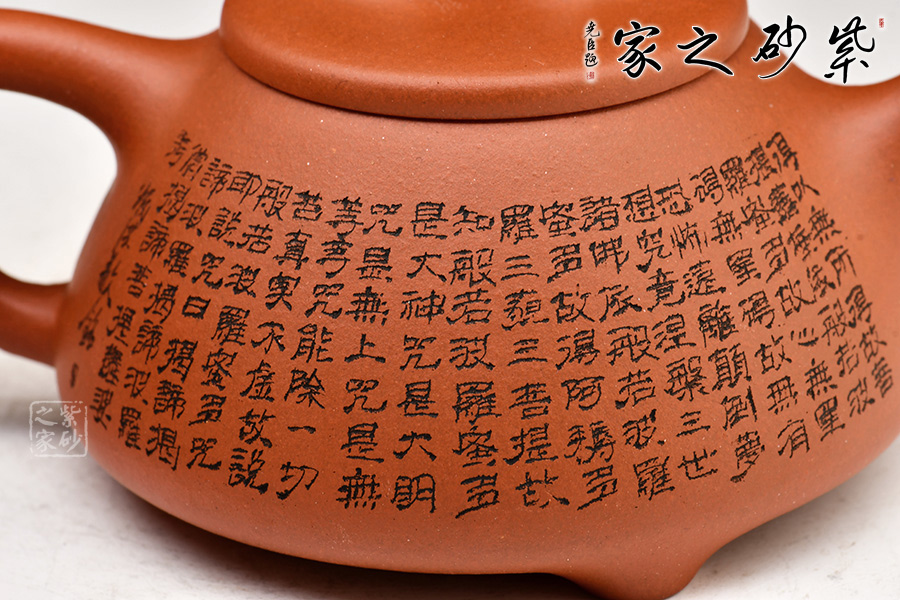 紫砂之家
堯臣題
得以無所得故菩
提薩埵依般若波
羅蜜多故心無罣
礙無罣礙故無有
恐怖遠離顛倒夢
想咒竟涅槃三世
諸佛依般若波羅
蜜多故得阿耨多
羅三藐三菩提故
知般若波羅蜜多
是大神咒是大明
咒是無上咒是無
等等咒能除一切
苦真實不虛故說
般若波羅蜜多咒
即說咒曰揭諦揭
諦波羅揭諦波羅
僧揭諦菩提薩婆
紫砂之家